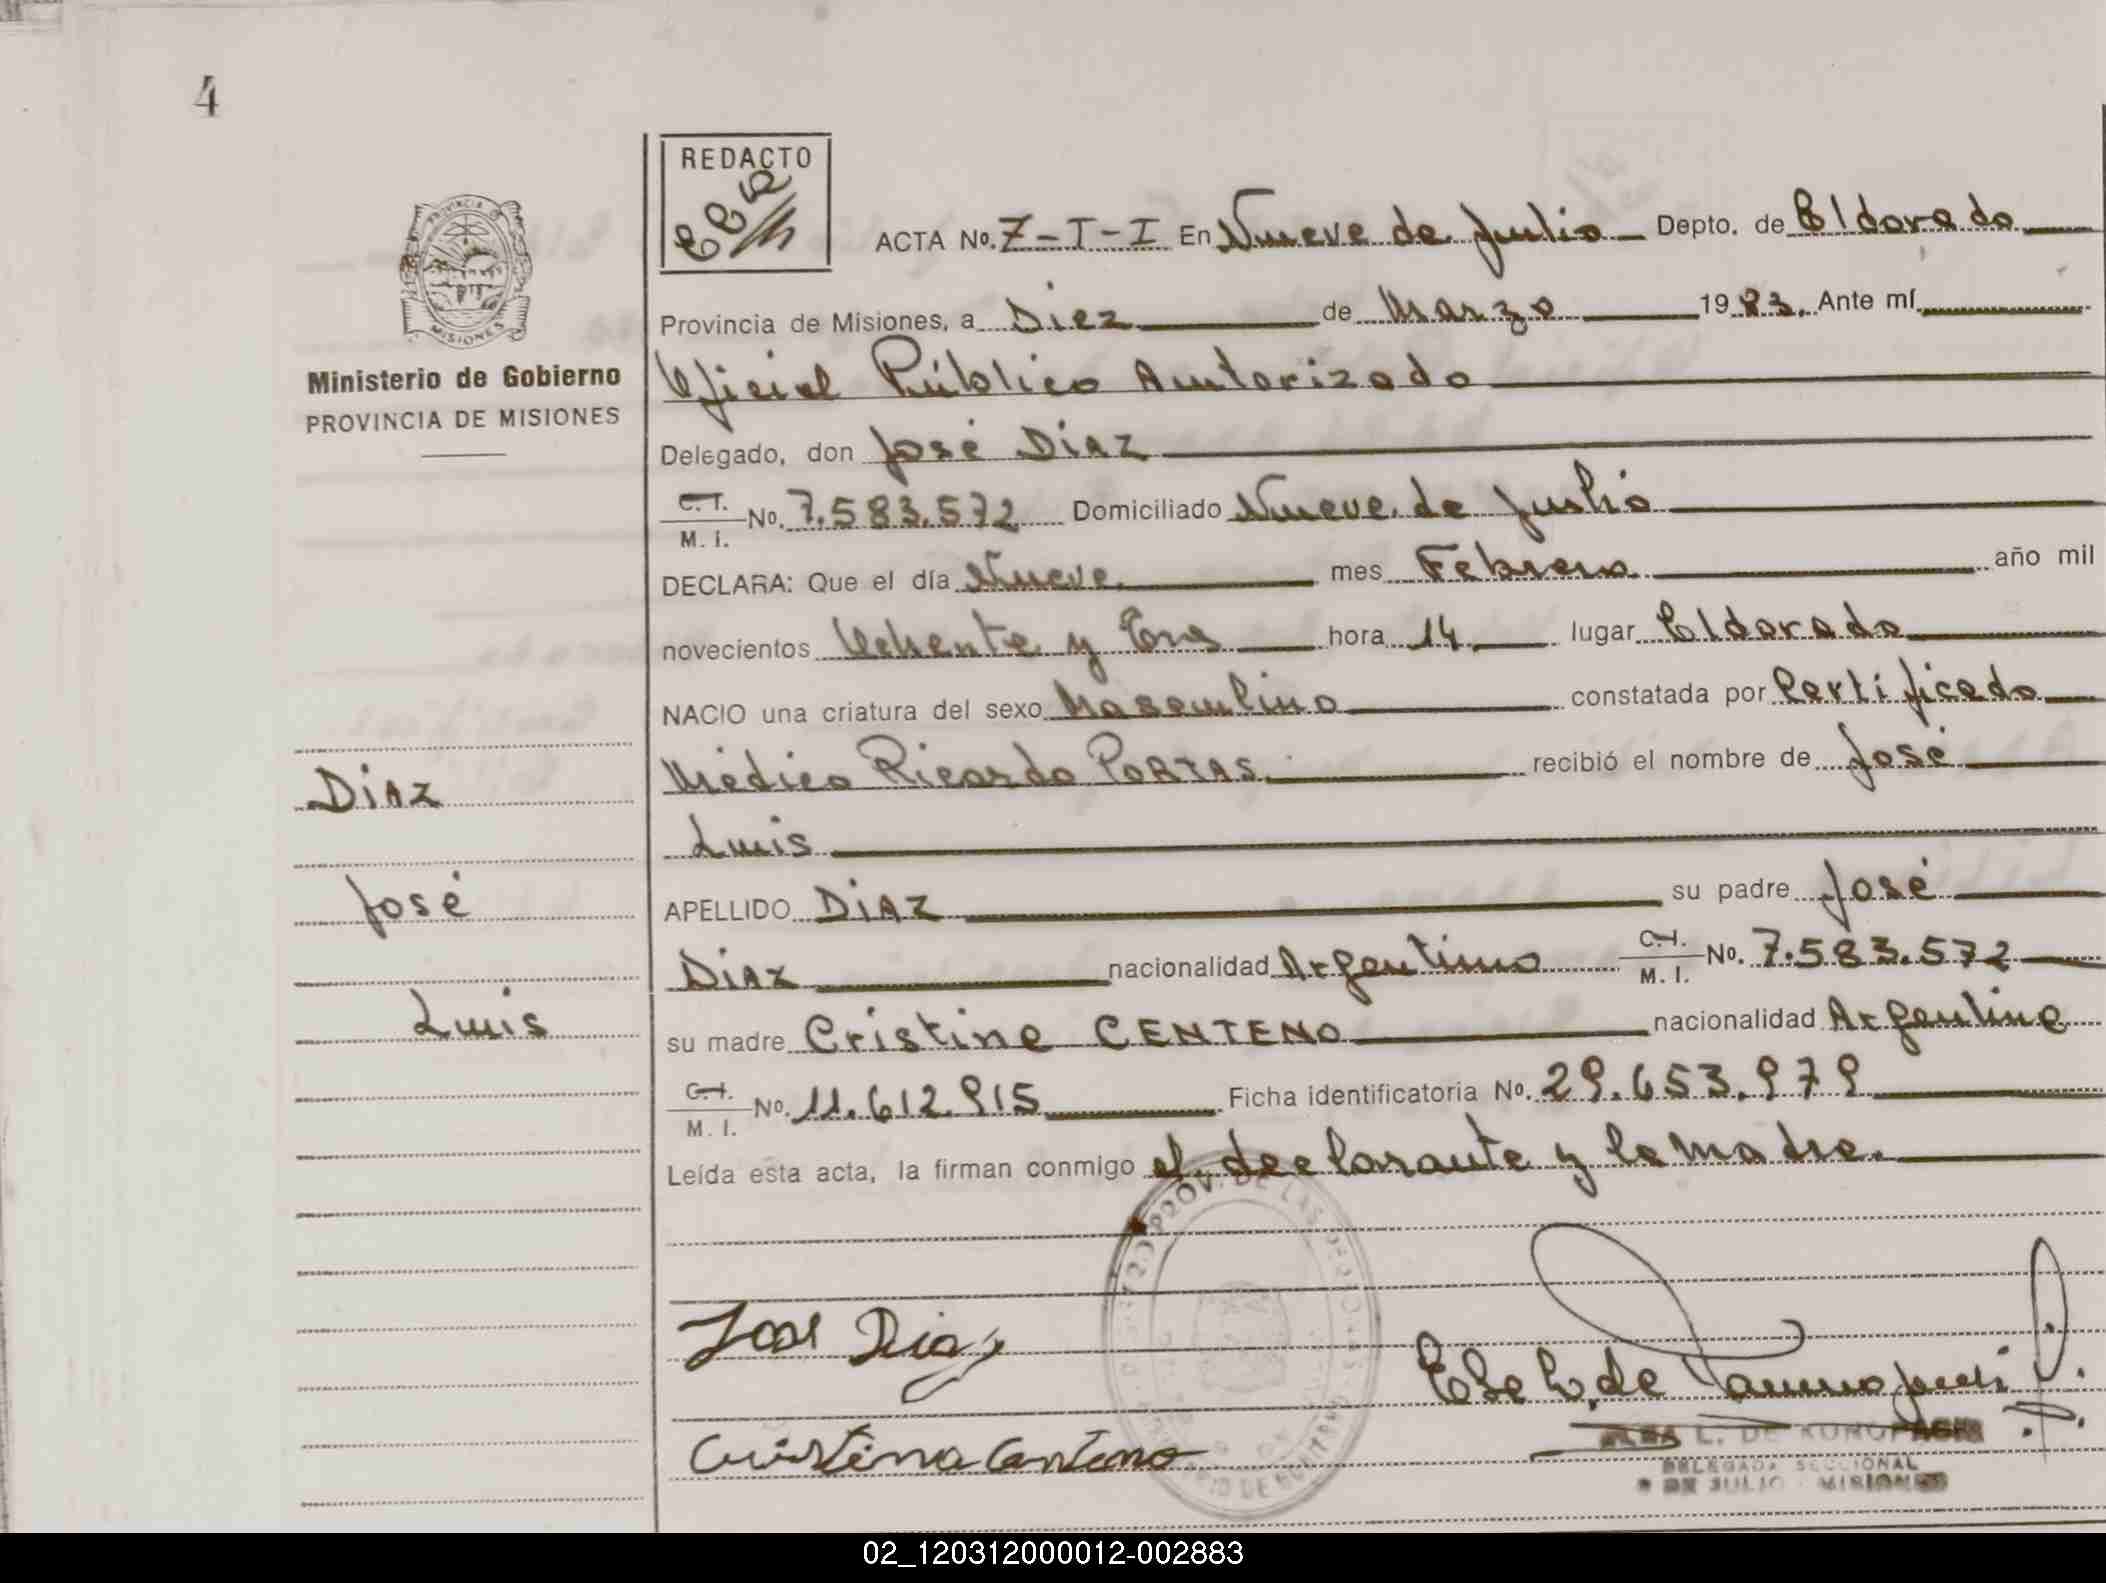 4
REDACTO
ACTA No. 7-T-I En Nueve de Julio Depto. de Eldorado
PROVINCIA DE
MISIONES
Provincia de Misiones, a Diez de Marzo 1983. Ante mí
Ministerio de Gobierno
PROVINCIA DE MISIONES
Oficial Público Autorizado
Delegado, don José DIAZ
C.I. / M. I. No. 7.583.572 Domiciliado Nueve de Julio
DECLARA: Que el día Nueve mes Febrero año mil
novecientos Ochenta y Tres hora 14 lugar Eldorado
NACIO una criatura del sexo Masculino constatada por Certificado
Médico Ricardo PORTAS. recibió el nombre de José
Luis
DIAZ
José
Luis
APELLIDO DIAZ su padre José
DIAZ nacionalidad Argentino C.I. / M. I. No. 7.583.572
su madre Cristina CENTENO nacionalidad Argentina
C.I. / M. I. No. 11.612.915 Ficha identificatoria No. 29.653.979
Leída esta acta, la firman conmigo el declarante y la madre.
José Diaz
Cristina Centeno
DELEGADA SECCIONAL
9 DE JULIO - MISIONES
02_120312000012-002883